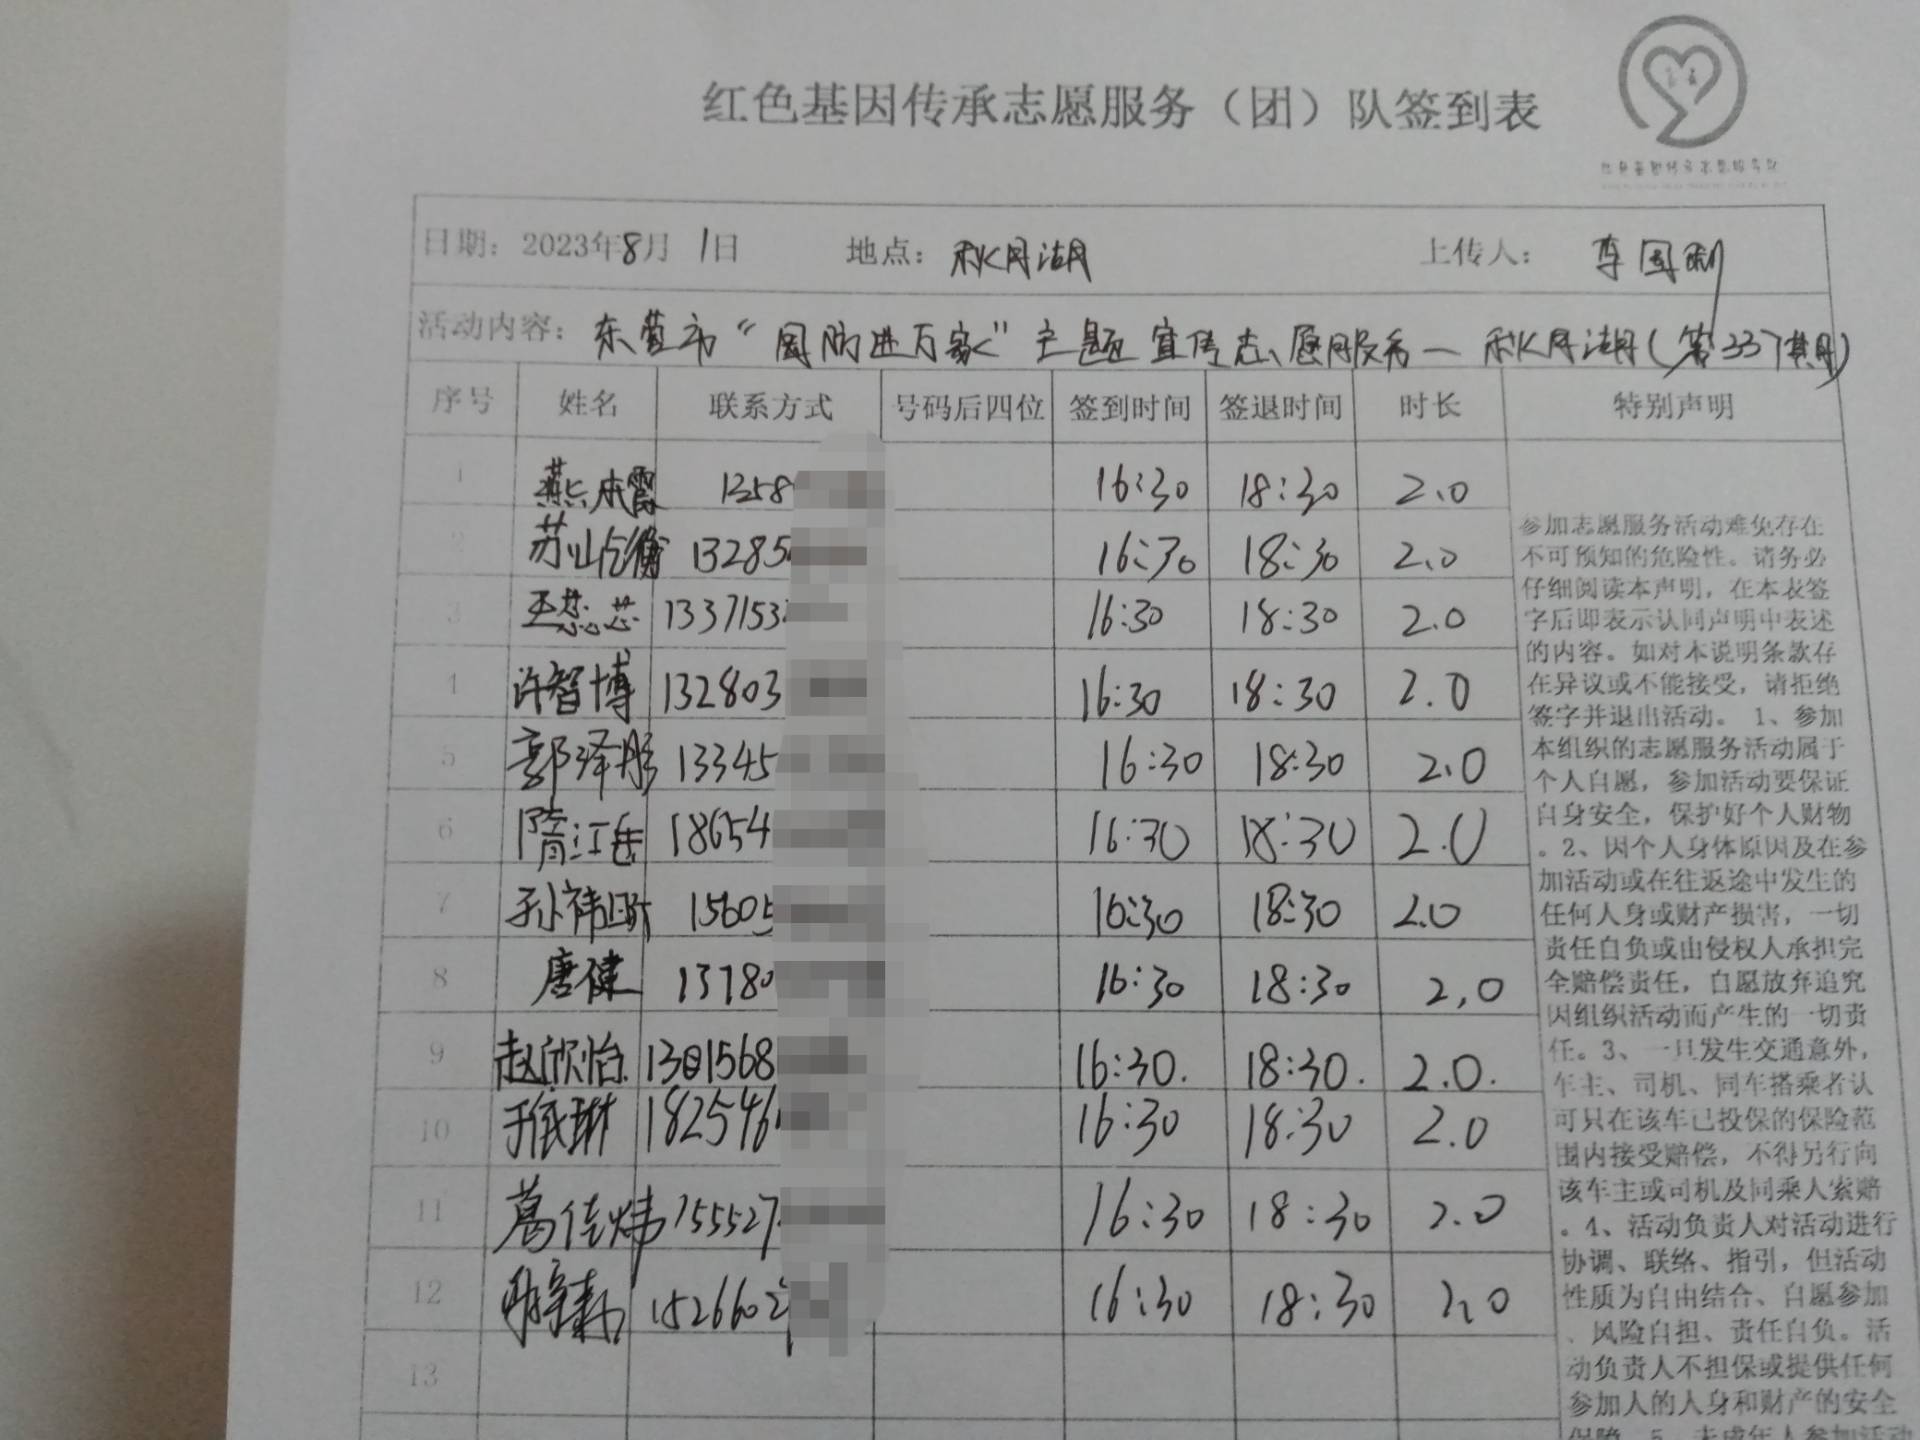 红色基因传承志愿服务（团）队签到表
日期：2023年8月1日 地点：秋月湖 上传人：
活动内容：东营市“国防进万家”主题宣传志愿服务—秋月湖（第337期）
序号 姓名 联系方式 号码后四位 签到时间 签退时间 时长 特别声明
1 燕本霞 1358 16:30 18:30 2.0
2 苏 13285 16:30 18:30 2.0
3 1337153 16:30 18:30 2.0
4 许智博 132803 16:30 18:30 2.0
5 郭泽彤 13345 16:30 18:30 2.0
6 隋江岳 18654 16:30 18:30 2.0
7 孙祎 15605 16:30 18:30 2.0
8 唐健 13780 16:30 18:30 2.0
9 赵欣怡 1301568 16:30. 18:30. 2.0.
10 于依琳 182546 16:30 18:30 2.0
11 葛佳炜 155527 16:30 18:30 2.0
12 1526602 16:30 18:30 2.0
13
参加志愿服务活动难免存在
不可预知的危险性。请务必
仔细阅读本声明，在本表签
字后即表示认同声明中表述
的内容。如对本说明条款存
在异议或不能接受，请拒绝
签字并退出活动。1、参加
本组织的志愿服务活动属于
个人自愿，参加活动要保证
自身安全，保护好个人财物
。2、因个人身体原因及在参
加活动或在往返途中发生的
任何人身或财产损害，一切
责任自负或由侵权人承担完
全赔偿责任，自愿放弃追究
因组织活动而产生的一切责
任。3、一旦发生交通意外，
车主、司机、同车搭乘者认
可只在该车已投保的保险范
围内接受赔偿，不得另行向
该车主或司机及同乘人索赔
。4、活动负责人对活动进行
协调、联络、指引，但活动
性质为自由结合、自愿参加
、风险自担、责任自负。活
动负责人不担保或提供任何
参加人的人身和财产的安全
保障。5、未成年人参加活动